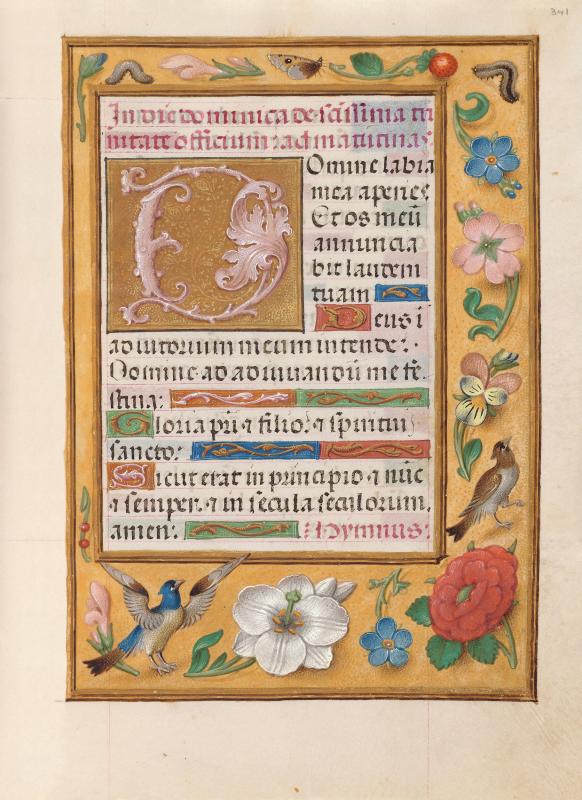 341
In die dominica de scissima tri
nitate officium ad matutinas:
Omine labia
mea aperies
Et os meū
annuncia
bit laudem
tuam
Deus ī
adiutorium meum intende:
Domine ad adiuuandū me fe
stina:
Gloria pri ⁊ filio: ⁊ spiritui
sancto:
Sicut erat in principio ⁊ nūc
⁊ semper, ⁊ in secula seculorum,
amen: Hymnus: